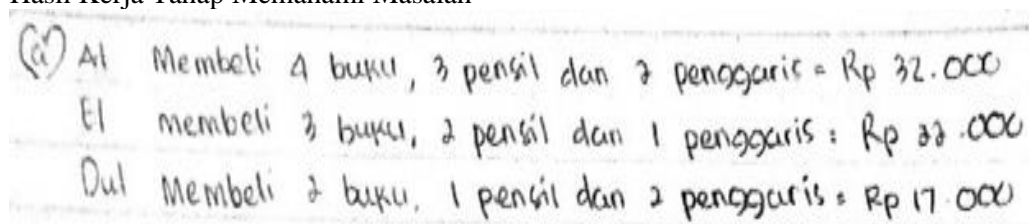 Hasil Kerja Tahap Memahami Masalah
(a) Al Membeli 4 buku, 3 pensil dan 2 penggaris = Rp 32.000
El membeli 3 buku, 2 pensil dan 1 penggaris = Rp 22.000
Dul Membeli 2 buku, 1 pensil dan 2 penggaris = Rp 17.000